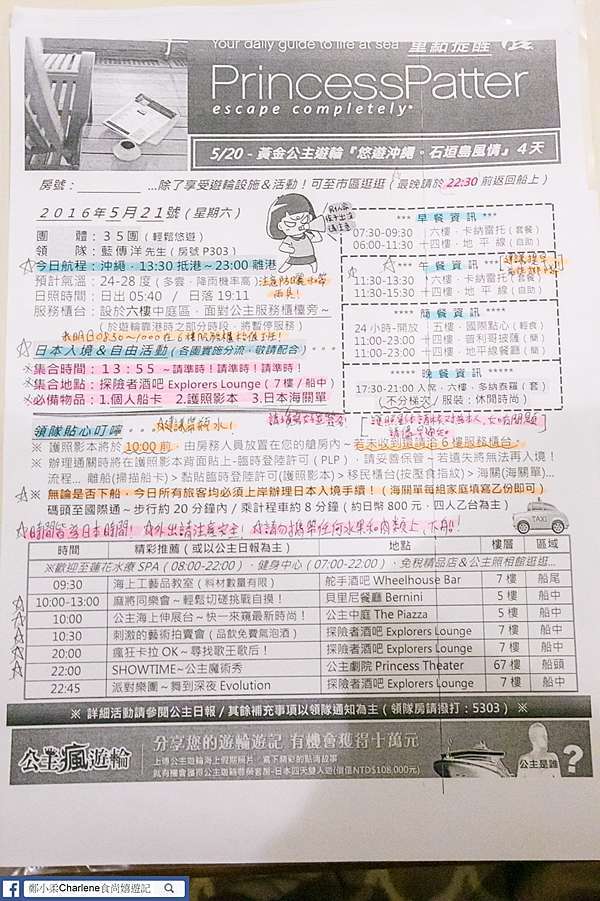 Your daily guide to life at sea 重點提醒
PrincessPatter
escape completely®
5/20 - 黃金公主遊輪『悠遊沖繩。石垣島風情』4天
房號：______ ...除了享受遊輪設施&活動！可至市區逛逛（最晚請於22:30前返回船上）
2016年5月21號(星期六)
團 體：35團（輕鬆悠遊）
領 隊：藍傳洋 先生（房號 P303）
☆今日航程：沖繩，13:30 抵港～23:00 離港
預計氣溫：24-28 度（多雲，降雨機率高）
日照時間：日出 05:40 / 日落 19:11
服務櫃台：設於六樓中庭區，面對公主服務櫃檯旁～
（於遊輪靠港時之部分時段，將暫停服務）
**** 早餐資訊 ****
07:30-09:30 │六樓．卡納雷托（套餐）
06:00-11:30 │十四樓．地 平 線（自助）
**** 午餐資訊 ****
11:30-13:30 │六樓．卡納雷托（套餐）
11:30-15:30 │十四樓．地 平 線（自助）
**** 簡餐資訊 ****
24 小時-開放 │五樓．國際點心（輕食）
11:00-23:00 │十四樓．普利哥披薩（簡）
11:00-23:00 │十四樓．地平線餐廳（簡）
**** 晚餐資訊 ****
17:30-21:00 入席，六樓．多納泰羅（套）
（不分梯次）/ 服裝：休閒時尚
☆日本入境&自由活動（各團實施分流，敬請配合）
※集合時間：13：55 ～請準時！請準時！請準時！
※集合地點：探險者酒吧 Explorers Lounge（7樓/船中）
※必備物品：1.個人船卡 2.護照影本 3.日本海關單
領隊貼心叮嚀．．．
※ 護照影本將於 10:00前，由房務人員放置在您的艙房內～若未收到還請洽6樓服務櫃台。
※ 辦理通關時將在護照影本背面貼上-臨時登陸許可（PLP），請妥善保管～若遺失將無法再入境！
流程... 離船(掃描船卡)＞黏貼臨時登陸許可(護照影本)＞移民櫃台(按壓食指紋)＞海關(海關單)...
☆※ 無論是否下船，今日所有旅客均必須上岸辦理日本入境手續！（海關單每組家庭填寫乙份即可）
碼頭至國際通～步行約 20 分鐘內 / 乘計程車約 8 分鐘（約日幣 800 元，四人乙台為主）
TAXI
☆時間皆為日本時間！☆外出請注意安全！☆請勿攜帶任何水果和肉類上、下船！
時間 精彩推薦（或以公主日報為主） 地點 樓層 區域
※歡迎至蓮花水療 SPA (08:00-22:00)，健身中心 (07:00-22:00)，免稅精品店&公主照相館逛逛...
09:30 海上工藝品教室（料材數量有限） 舵手酒吧 Wheelhouse Bar 7 樓 船尾
☆10:00-13:00 麻將同樂會～輕鬆切磋挑戰自摸！ 貝里尼餐廳 Bernini 5 樓 船中
☆10:00 公主海上伸展台～快一來窺最新時尚！ 公主中庭 The Piazza 5 樓 船中
☆10:30 刺激的藝術拍賣會（品飲免費氣泡酒） 探險者酒吧 Explorers Lounge 7 樓 船中
☆20:00 瘋狂卡拉 OK～尋找歌王歌后！ 探險者酒吧 Explorers Lounge 7 樓 船中
☆22:00 SHOWTIME~公主魔術秀 公主劇院 Princess Theater 67 樓 船頭
22:45 派對樂團～舞到深夜 Evolution 探險者酒吧 Explorers Lounge 7 樓 船中
※ 詳細活動請參閱公主日報 / 其餘補充事項以領隊通知為主（領隊房請撥打：5303）※
公主瘋遊輪
分享您的遊輪遊記 有機會獲得十萬元
上傳公主遊輪海上假期照片，寫下精彩的點滴故事
就有機會獲得公主遊輪尊榮套房-日本四天雙人遊(價值NTD$108,000元)
公主是誰 ?
鄭小柔Charlene食尚嬉遊記